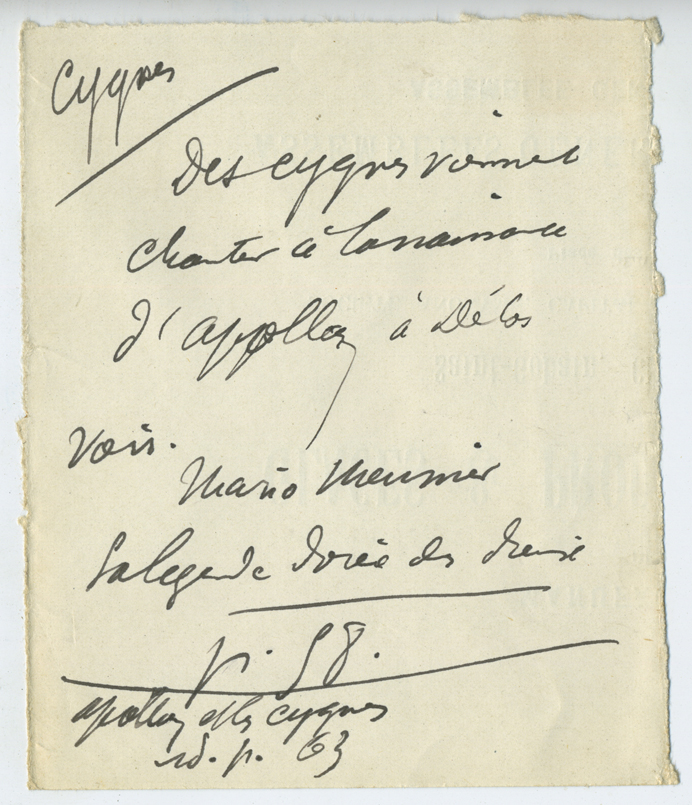 Cygnes
Des cygnes viennent
chanter à la naissance
d'Appollon à Délos
Voir.
Mario Meunier
La légende dorée des dieux
p. 58.
apollon et les cygnes
id. p. 63